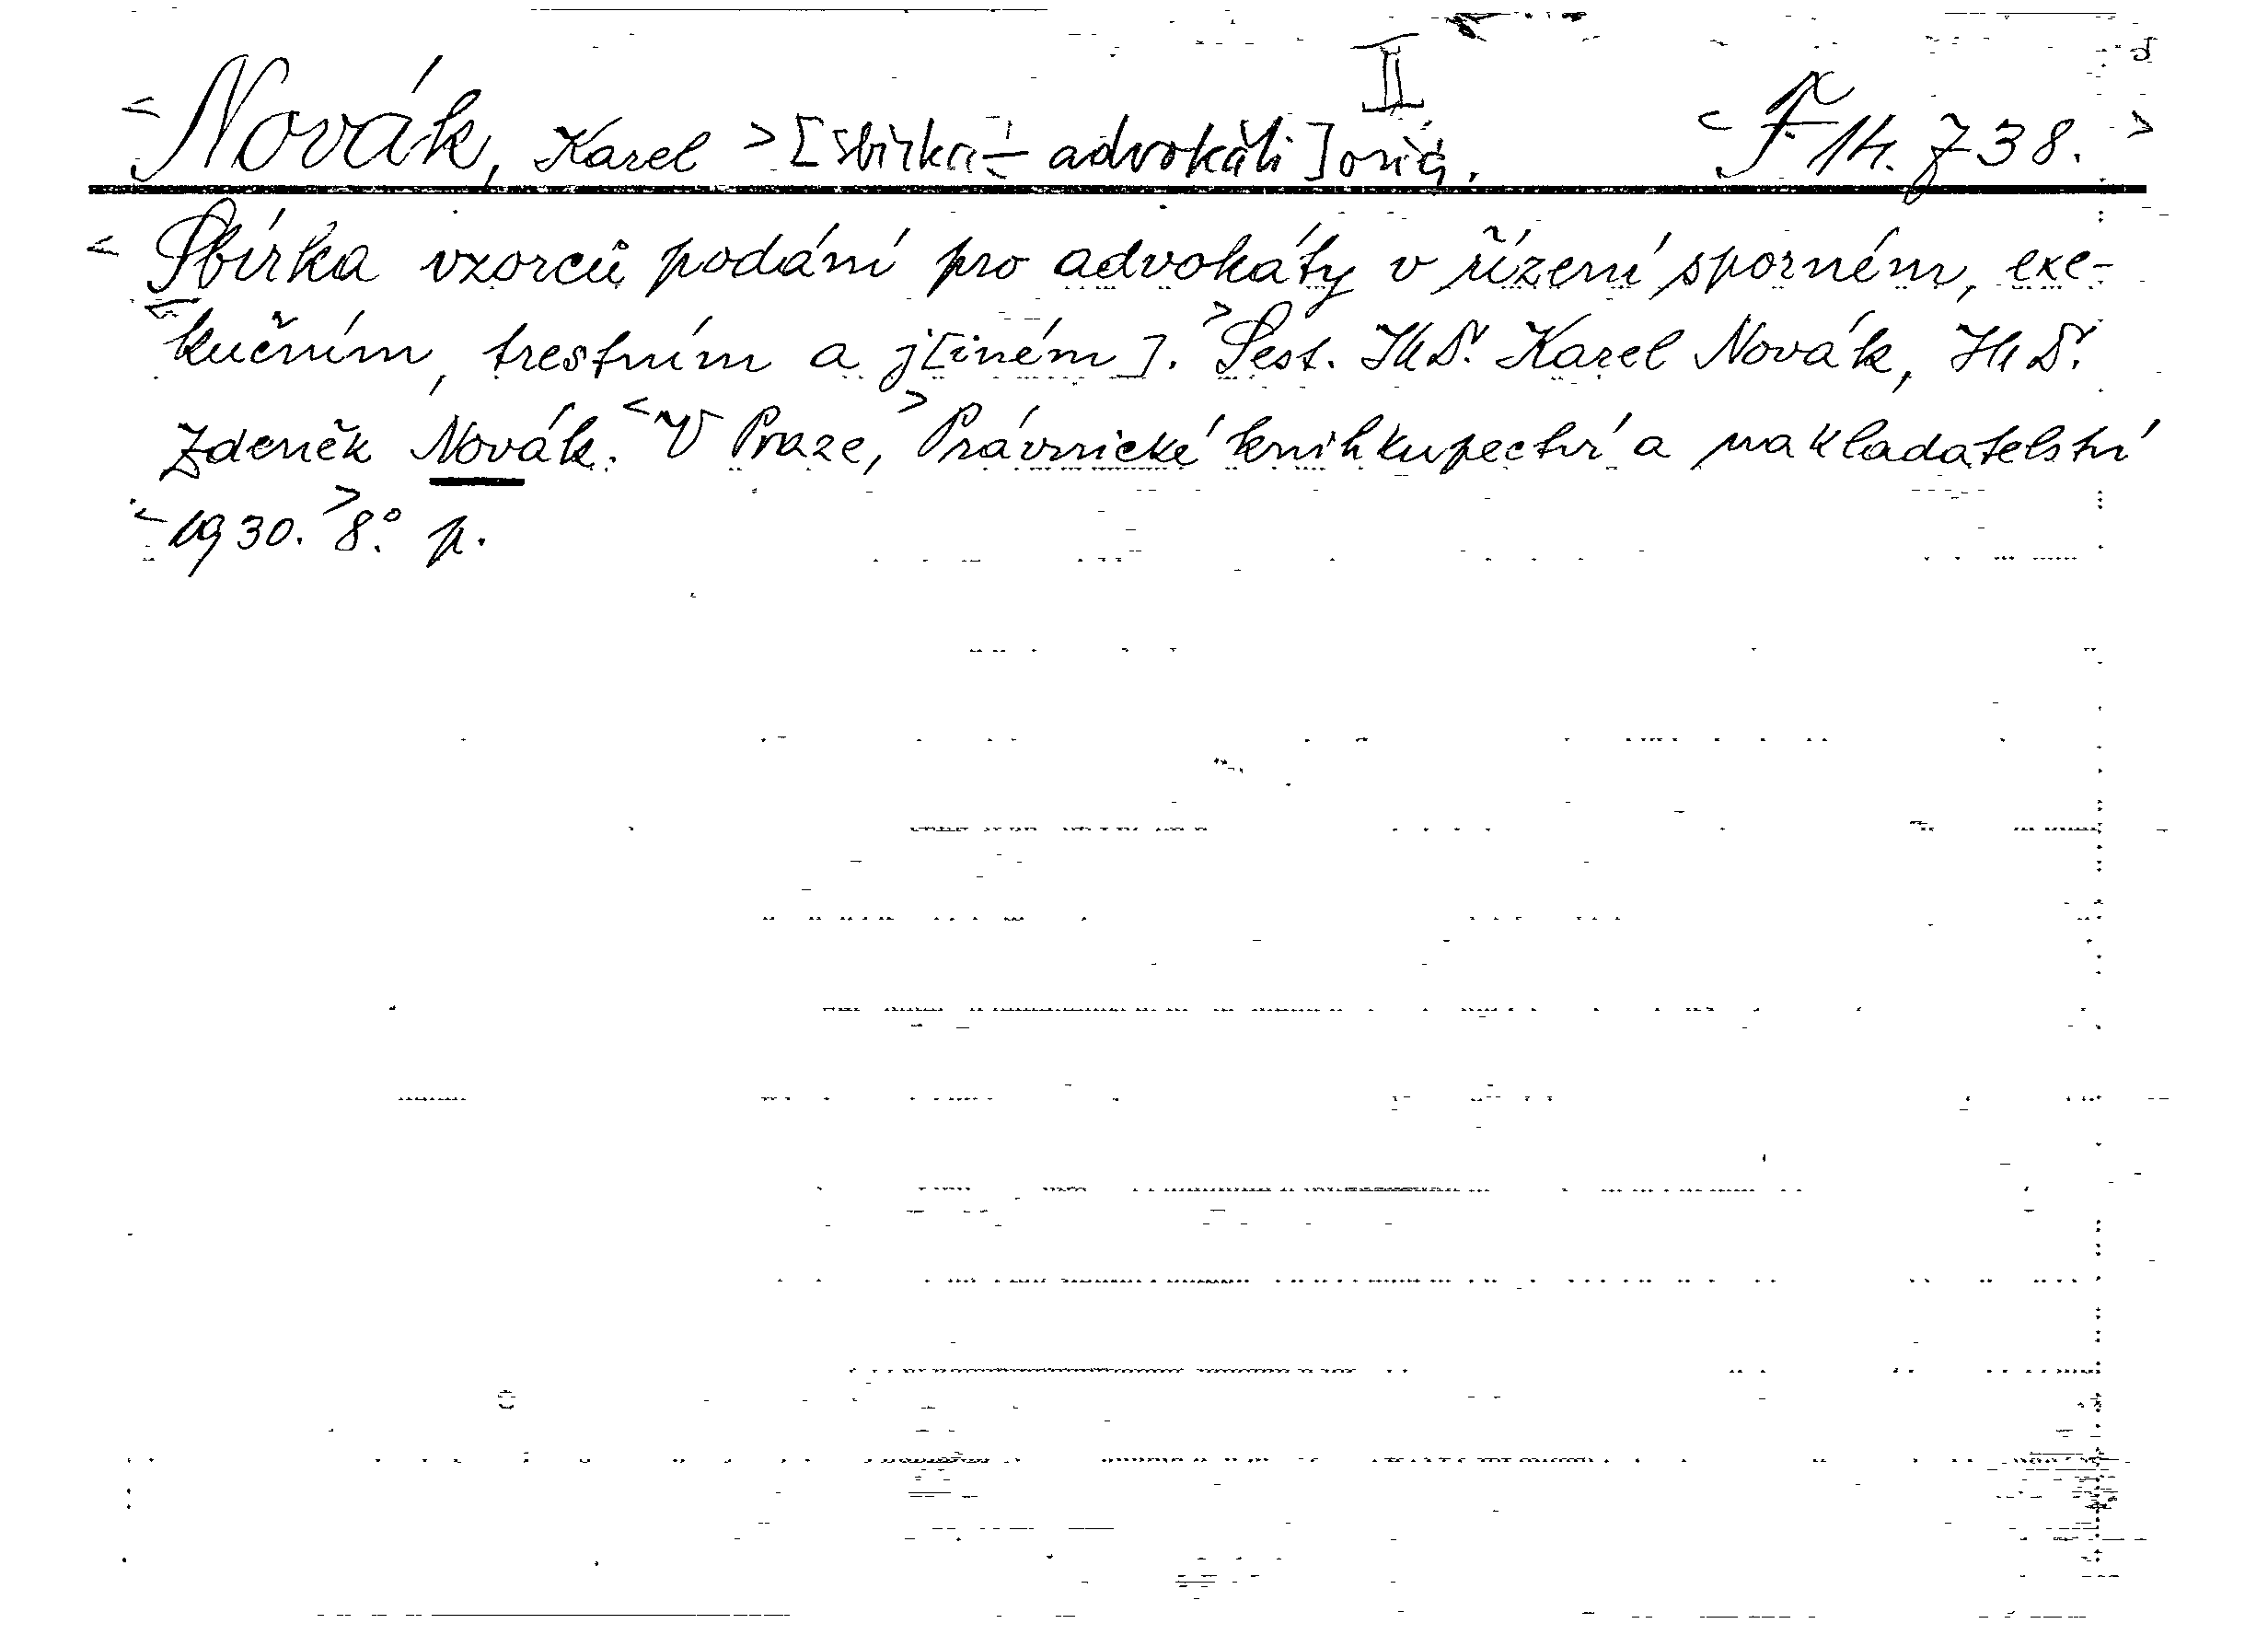 II
< Novák, Karel > [sbírka ÷ advokáti] < F 14. 738. >
< Sbírka vzorců podání pro advokáty v řízení sporném, exe-
kučním, trestním a j[iném]. > Sest. JUDr. Karel Novák, JUDr.
Zdeněk Novák. < V Praze, > Právnické knihkupectví a nakladatelství
< 1930. > 8°. p.